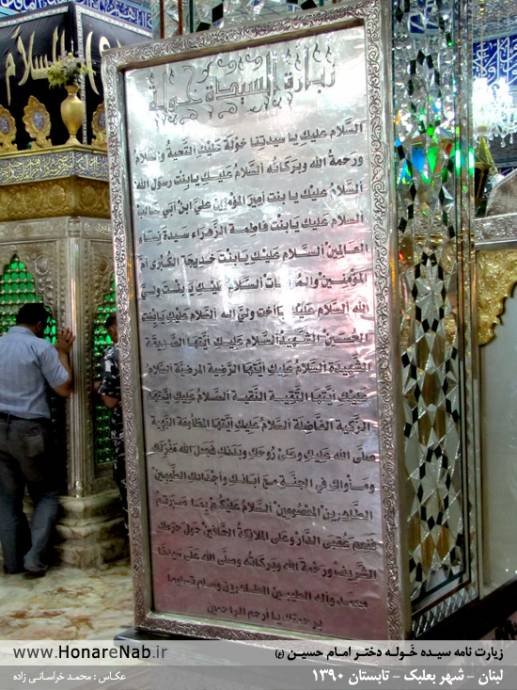 السلام
زيارة السيدة خولة
السلام عليكِ يا سيدتنا خولة عليك التحية والسلام
ورحمة الله وبركاته السلام عليكِ يا بنت رسول الله
السلام عليك يا بنت امير المؤمنين علي ابن ابي طالب
السلام عليك يا بنت فاطمة الزهراء سيدة نساء
العالمين السلام عليك يا بنت خديجة الكبرى ام
المؤمنين والمؤمنات السلام عليك يا بنت ولي
الله السلام عليك يا اخت ولي الله السلام عليك يا بنت
الحسين الشهيد السلام عليك ايتها الصديقة
الشهيدة السلام عليك ايتها الرضية المرضية السلام
عليك ايتها التقية النقية السلام عليك ايتها
الزكية الفاضلة السلام عليك ايتها المظلومة
صلى الله عليك وعلى روحك وبدنك فجعل الله منزلك
ومأواك في الجنة مع آبائك وأجدادك الطيبين
الطاهرين المعصومين السلام عليكم بما صبرتم
فنعم عقبى الدار وعلى الملائكة الحافين حول حرمك
الشريف ورحمة الله وبركاته وصلى الله على سيدنا
محمد وآله الطيبين الطاهرين وسلم تسليما
برحمتك يا أرحم الراحمين
زیارت نامه سیده خَوله دختر امام حسین (ع)
www.HonareNab.ir
لبنان - شهر بعلبک - تابستان ۱۳۹۰
عکاس : محمد خراسانی زاده